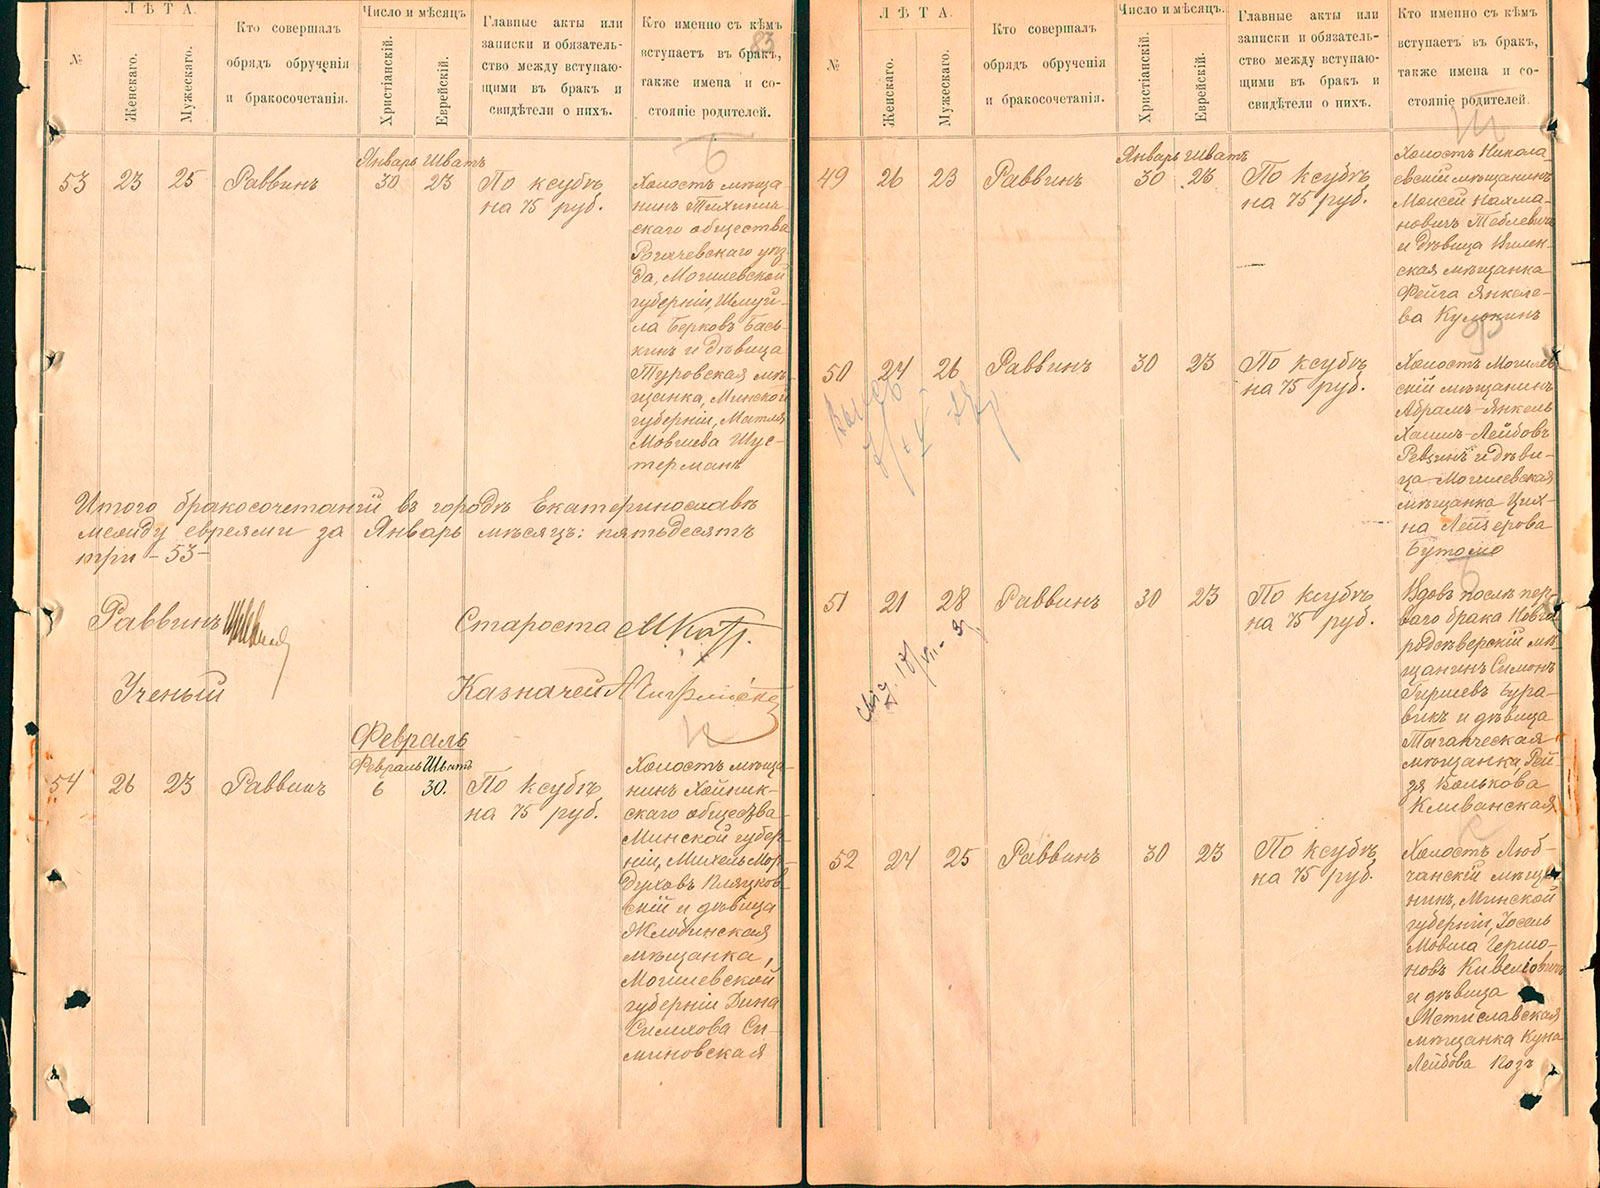 №
ЛѢТА.
Женскаго.
Мужескаго.
Кто совершалъ
обрядъ обрученія
и бракосочетанія.
Число и мѣсяцъ
Христіанскій.
Еврейскій.
Главные акты или
записки и обязатель-
ство между вступаю-
щими въ бракъ и
свидѣтели о нихъ.
Кто именно съ кѣмъ
вступаетъ въ бракъ,
также имена и со-
стояніе родителей.
83
Январь Шватъ
53 23 25 Раввинъ 30 23 По ксубѣ
на 75 руб.
Холостъ мѣща-
нинъ
скаго общества
Рогачевскаго уѣз
да, Могилевской
губерніи, Шмуй-
ла Берковъ Бась-
кинъ и дѣвица
Туровская мѣ-
щанка, Минской
губерніи, Матля
Мовшева Шус-
терманъ
Итого бракосочетаній въ городѣ Екатеринославѣ
между евреями за Январь мѣсяцъ: пятьдесятъ
три -53-
Раввинъ
Староста
Ученый
Казначей
Февраль
Февраль Шватъ
54 26 23 Раввинъ 6 30. По ксубѣ
на 75 руб.
Холостъ мѣща-
нинъ Хойник-
скаго общества
Минской губер-
ніи, Михель Мор-
духовъ Пляцков-
скій и дѣвица
Жлобинская
мѣщанка,
Могилевской
губерніи Дина
Симхова Си-
миновская
№
ЛѢТА.
Женскаго.
Мужескаго.
Кто совершалъ
обрядъ обрученія
и бракосочетанія.
Число и мѣсяцъ.
Христіанскій.
Еврейскій.
Главные акты или
записки и обязатель-
ство между вступаю-
щими въ бракъ и
свидѣтели о нихъ.
Кто именно съ кѣмъ
вступаетъ въ бракъ,
также имена и со-
стояніе родителей.
Январь Шватъ
49 26 23 Раввинъ 30 23 По ксубѣ
на 75 руб.
Холостъ Никола-
евскій мѣщанинъ
Моисей Нахма-
новичъ Теблевичъ
и дѣвица Вилен-
ская мѣщанка
Фейга Янкеле-
ва Кулокинъ
50 24 26 Раввинъ 30 23 По ксубѣ
на 75 руб.
Холостъ Могилев
скій мѣщанинъ
Абрамъ-Янкель
Хаимъ-Лейбовъ
Ревзинъ и дѣви-
ца Могилевская
мѣщанка Цих-
на Лейзерова
Бутомо
51 21 28 Раввинъ 30 23 По ксубѣ
на 75 руб.
Вдовъ послѣ пер-
ваго брака Новго
родсѣверскій мѣ-
щанинъ Симонъ
Гиршевъ Бура-
викъ и дѣвица
Таганческая
мѣщанка, Рей-
зя Волькова
Кливанская
52 24 25 Раввинъ 30 23 По ксубѣ
на 75 руб.
Холостъ Люб-
чанскій мѣща-
нинъ, Минской
губерніи, Іосель
Мовша Гершо-
новъ Кивеліовичъ
и дѣвица
Мстиславская
мѣщанка Куна
Лейбова Козъ